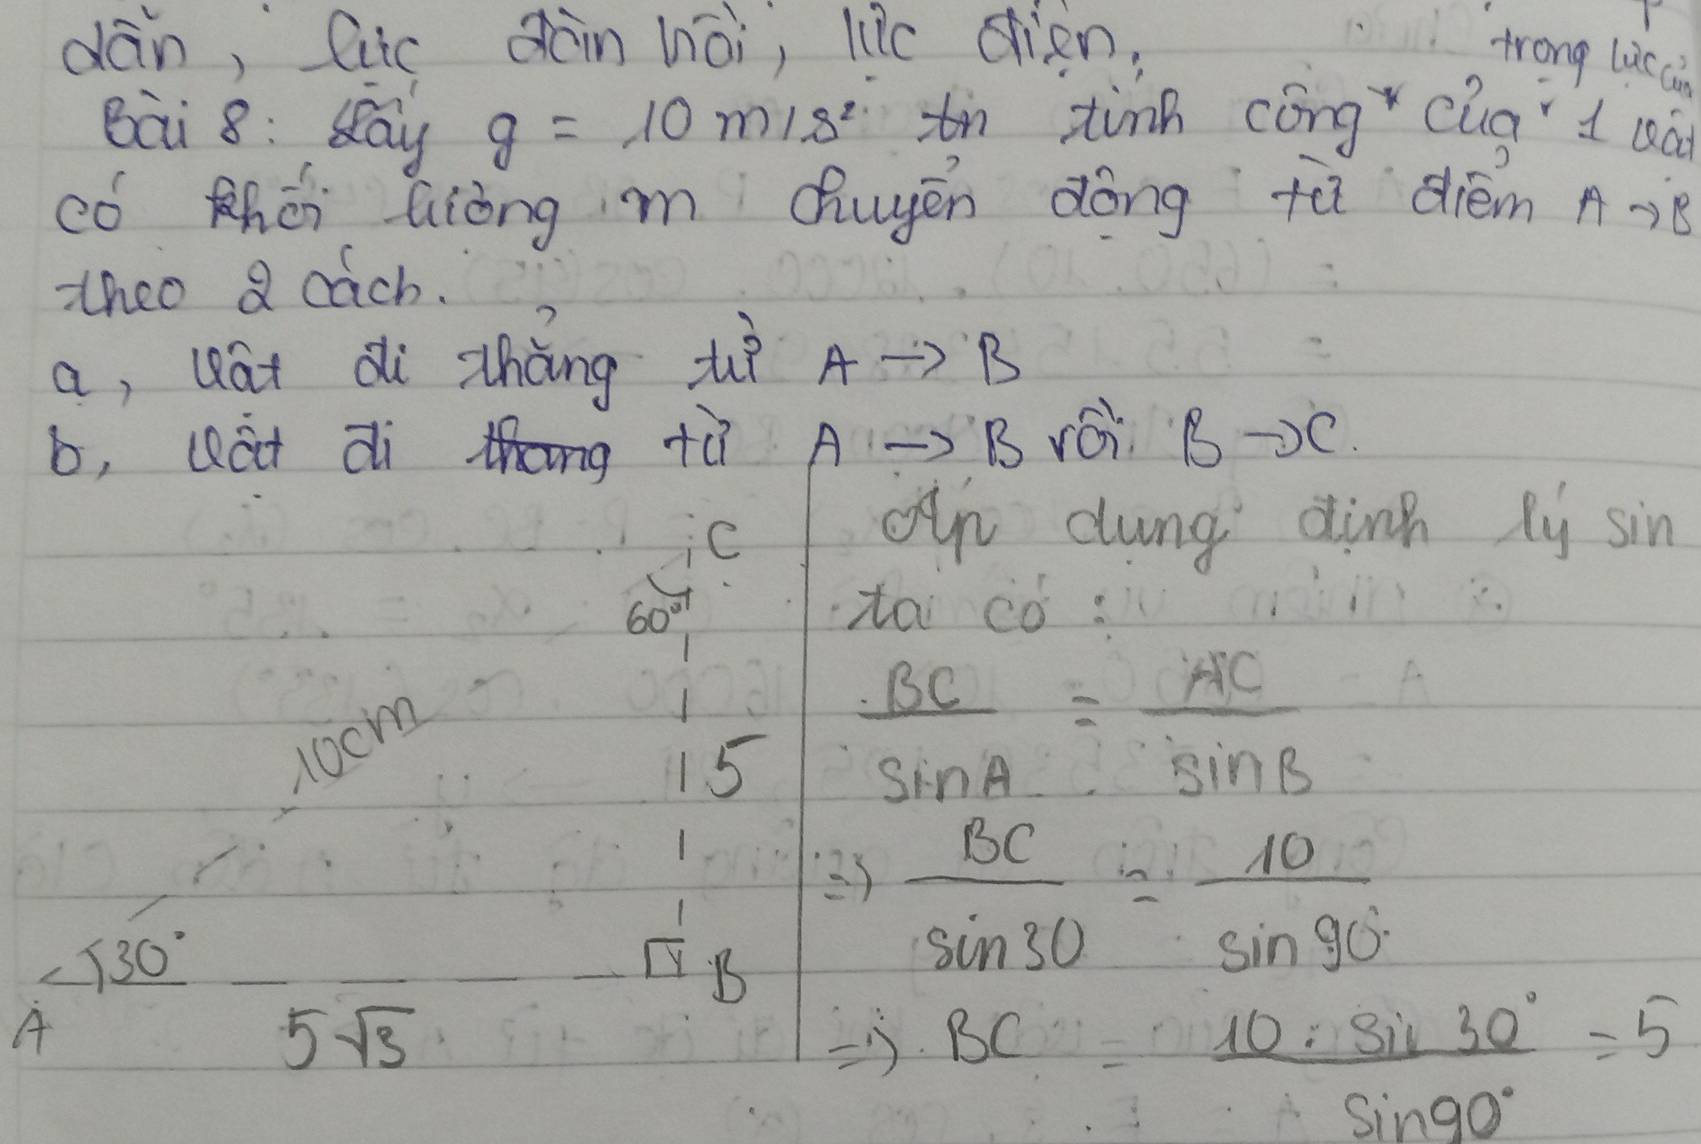 dẫn, lực đàn hồi, lực điện.
trọng lực của
Bài 8: Lấy g = 10 m/s² tính công của 1 vật
có khối lượng m chuyển động từ điểm A → B
theo 2 cách.
a, Vật đi thẳng từ A → B
b, Vật đi từ A → B rồi B → C.
C
60°
10cm
5
30°
B
A
5√3
Áp dụng định lý sin
ta có:
BC/sin A = AC/sin B
=> BC/sin 30 = 10/sin 90°
=> BC = 10 . sin 30°/sin 90° = 5